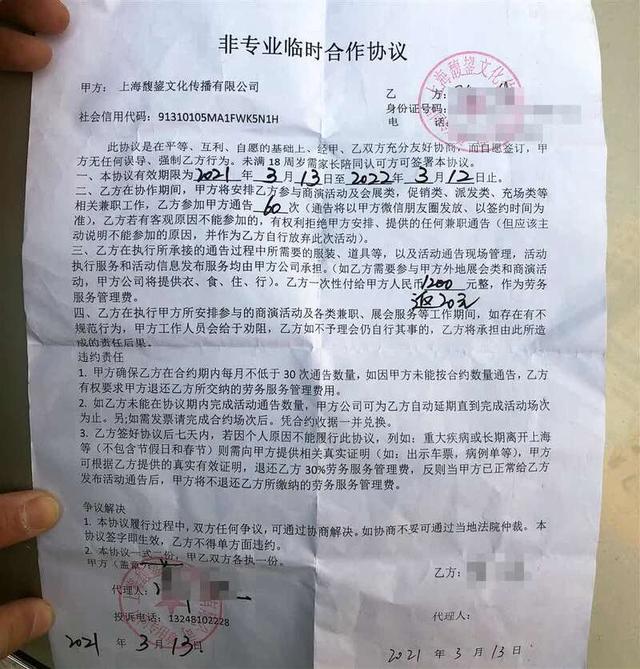 非专业临时合作协议
甲方：上海馥鋆文化传播有限公司
乙 方：
社会信用代码：91310105MA1FWK5N1H
身份证号码：
电话：
此协议是在平等、互利、自愿的基础上，经甲、乙双方充分友好协商，而自愿签订，甲
方无任何误导、强制乙方行为。未满 18 周岁需家长陪同认可方可签署本协议。
一、本协议有效期限为 2021 年 3 月 13 日至 2022 年 3 月 12 日止。
二、在协作期间，甲方将安排乙方参与商演活动及会展类，促销类、派发类、充场类等
相关兼职工作，乙方参加甲方通告 60 次（通告将以甲方微信朋友圈发放、以签约时间为
准），乙方若有客观原因不能参加的，有权利拒绝甲方安排、提供的任何兼职通告（但应该主
动说明不能参加的原因，并作为乙方自行放弃此次活动）。
三、乙方在执行所承接的通告过程中所需要的服装、道具等，以及活动通告现场管理，活动
执行服务和活动信息发布服务均由甲方公司承担。（如乙方需要参与甲方外地展会类和商演活
动，甲方公司将提供衣、食、住、行）。乙方一次性付给甲方人民币 1200 元整，作为劳务
服务管理费。
返20元
四、乙方在执行甲方所安排参与的商演活动及各类兼职、展会服务等工作期间，如存在有不
规范行为，甲方工作人员会给于劝阻，乙方如不予理会仍自行其事的，乙方将承担由此所造
成的责任后果。
违约责任
1. 甲方确保乙方在合约期内每月不低于 30 次通告数量，如因甲方未能按合约数量通告，乙方
有权要求甲方退还乙方所交纳的劳务服务管理费用。
2. 如乙方未能在协议期内完成活动通告数量，甲方公司可为乙方自动延期直到完成活动场次
为止。另;如需发票请完成合约场次后。凭合约收据一并兑换。
3. 乙方签好协议后七天内，若因个人原因不能履行此协议，列如：重大疾病或长期离开上海
等（不包含节假日和春节）则需向甲方提供相关真实证明（如：出示车票，病例单等），甲方
可根据乙方提供的真实有效证明，退还乙方 30%劳务服务管理费，反则当甲方已正常给乙方
发布活动通告后，甲方将不退还乙方所缴纳的劳务服务管理费。
争议解决
1. 本协议履行过程中，双方任何争议，可通过协商解决。如协商不妥可通过当地法院仲裁。本
协议签字即生效，乙方不得单方面违约。
2. 本协议一式二份，甲乙双方各执一份。
甲方（盖章）
乙方：
代理人：
代理人：
投诉电话：13248102228
2021 年 3 月 13 日
2021 年 3 月 13 日